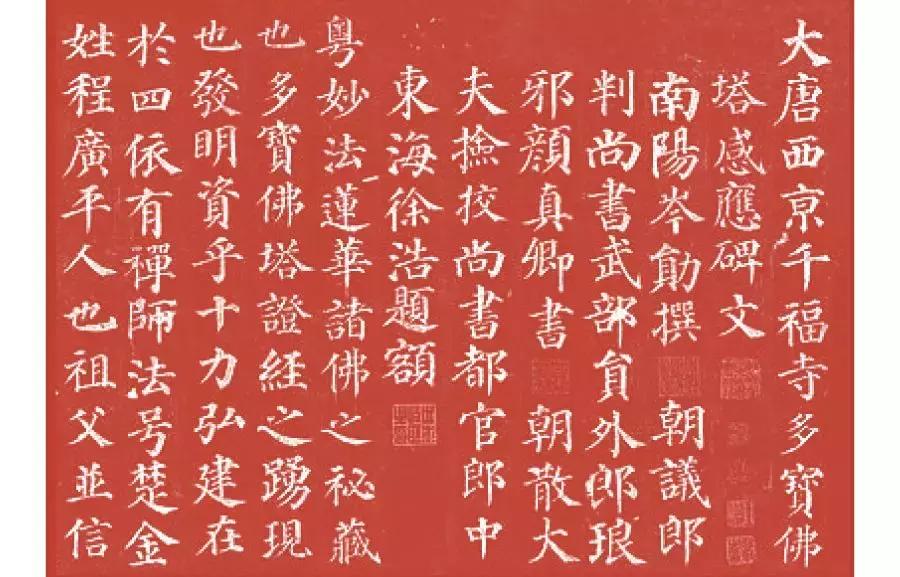 大唐西京千福寺多寳佛
塔感應碑文
南陽岑勛撰 朝議郎
判尚書武部員外郎琅
邪顏真卿書 朝散大
夫撿挍尚書都官郎中
東海徐浩題額
粵妙法蓮華諸佛之祕藏
也多寳佛塔證經之踴現
也發明資乎十力弘建在
於四依有禪師法号楚金
姓程廣平人也祖父並信